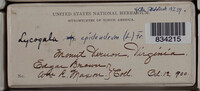 UNITED STATES NATIONAL HERBARIUM
834215
Lycogala epidendrum (L.) Fr.
Mount Vernon, Virginia.
Edgar Brown
Wm R. Maxon } Coll. Oct. 13, 900